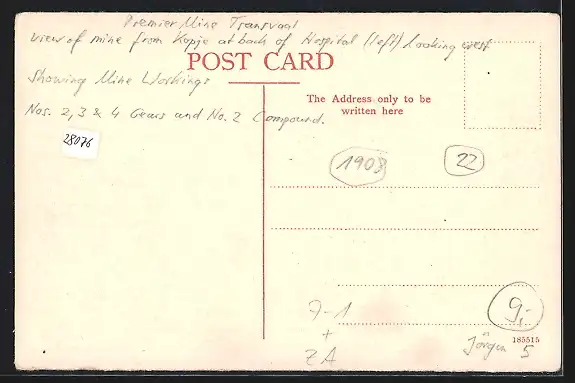 Premier Mine Transvaal
View of mine from Kopje at back of Hospital (left) Looking west
POST CARD
Showing Mine Workings
The Address only to be
written here
Nos. 2, 3 & 4 Gears and No. 2 Compound.
28076
1908
22
7-1
+
ZA
9,-
Jörgen 5
185515